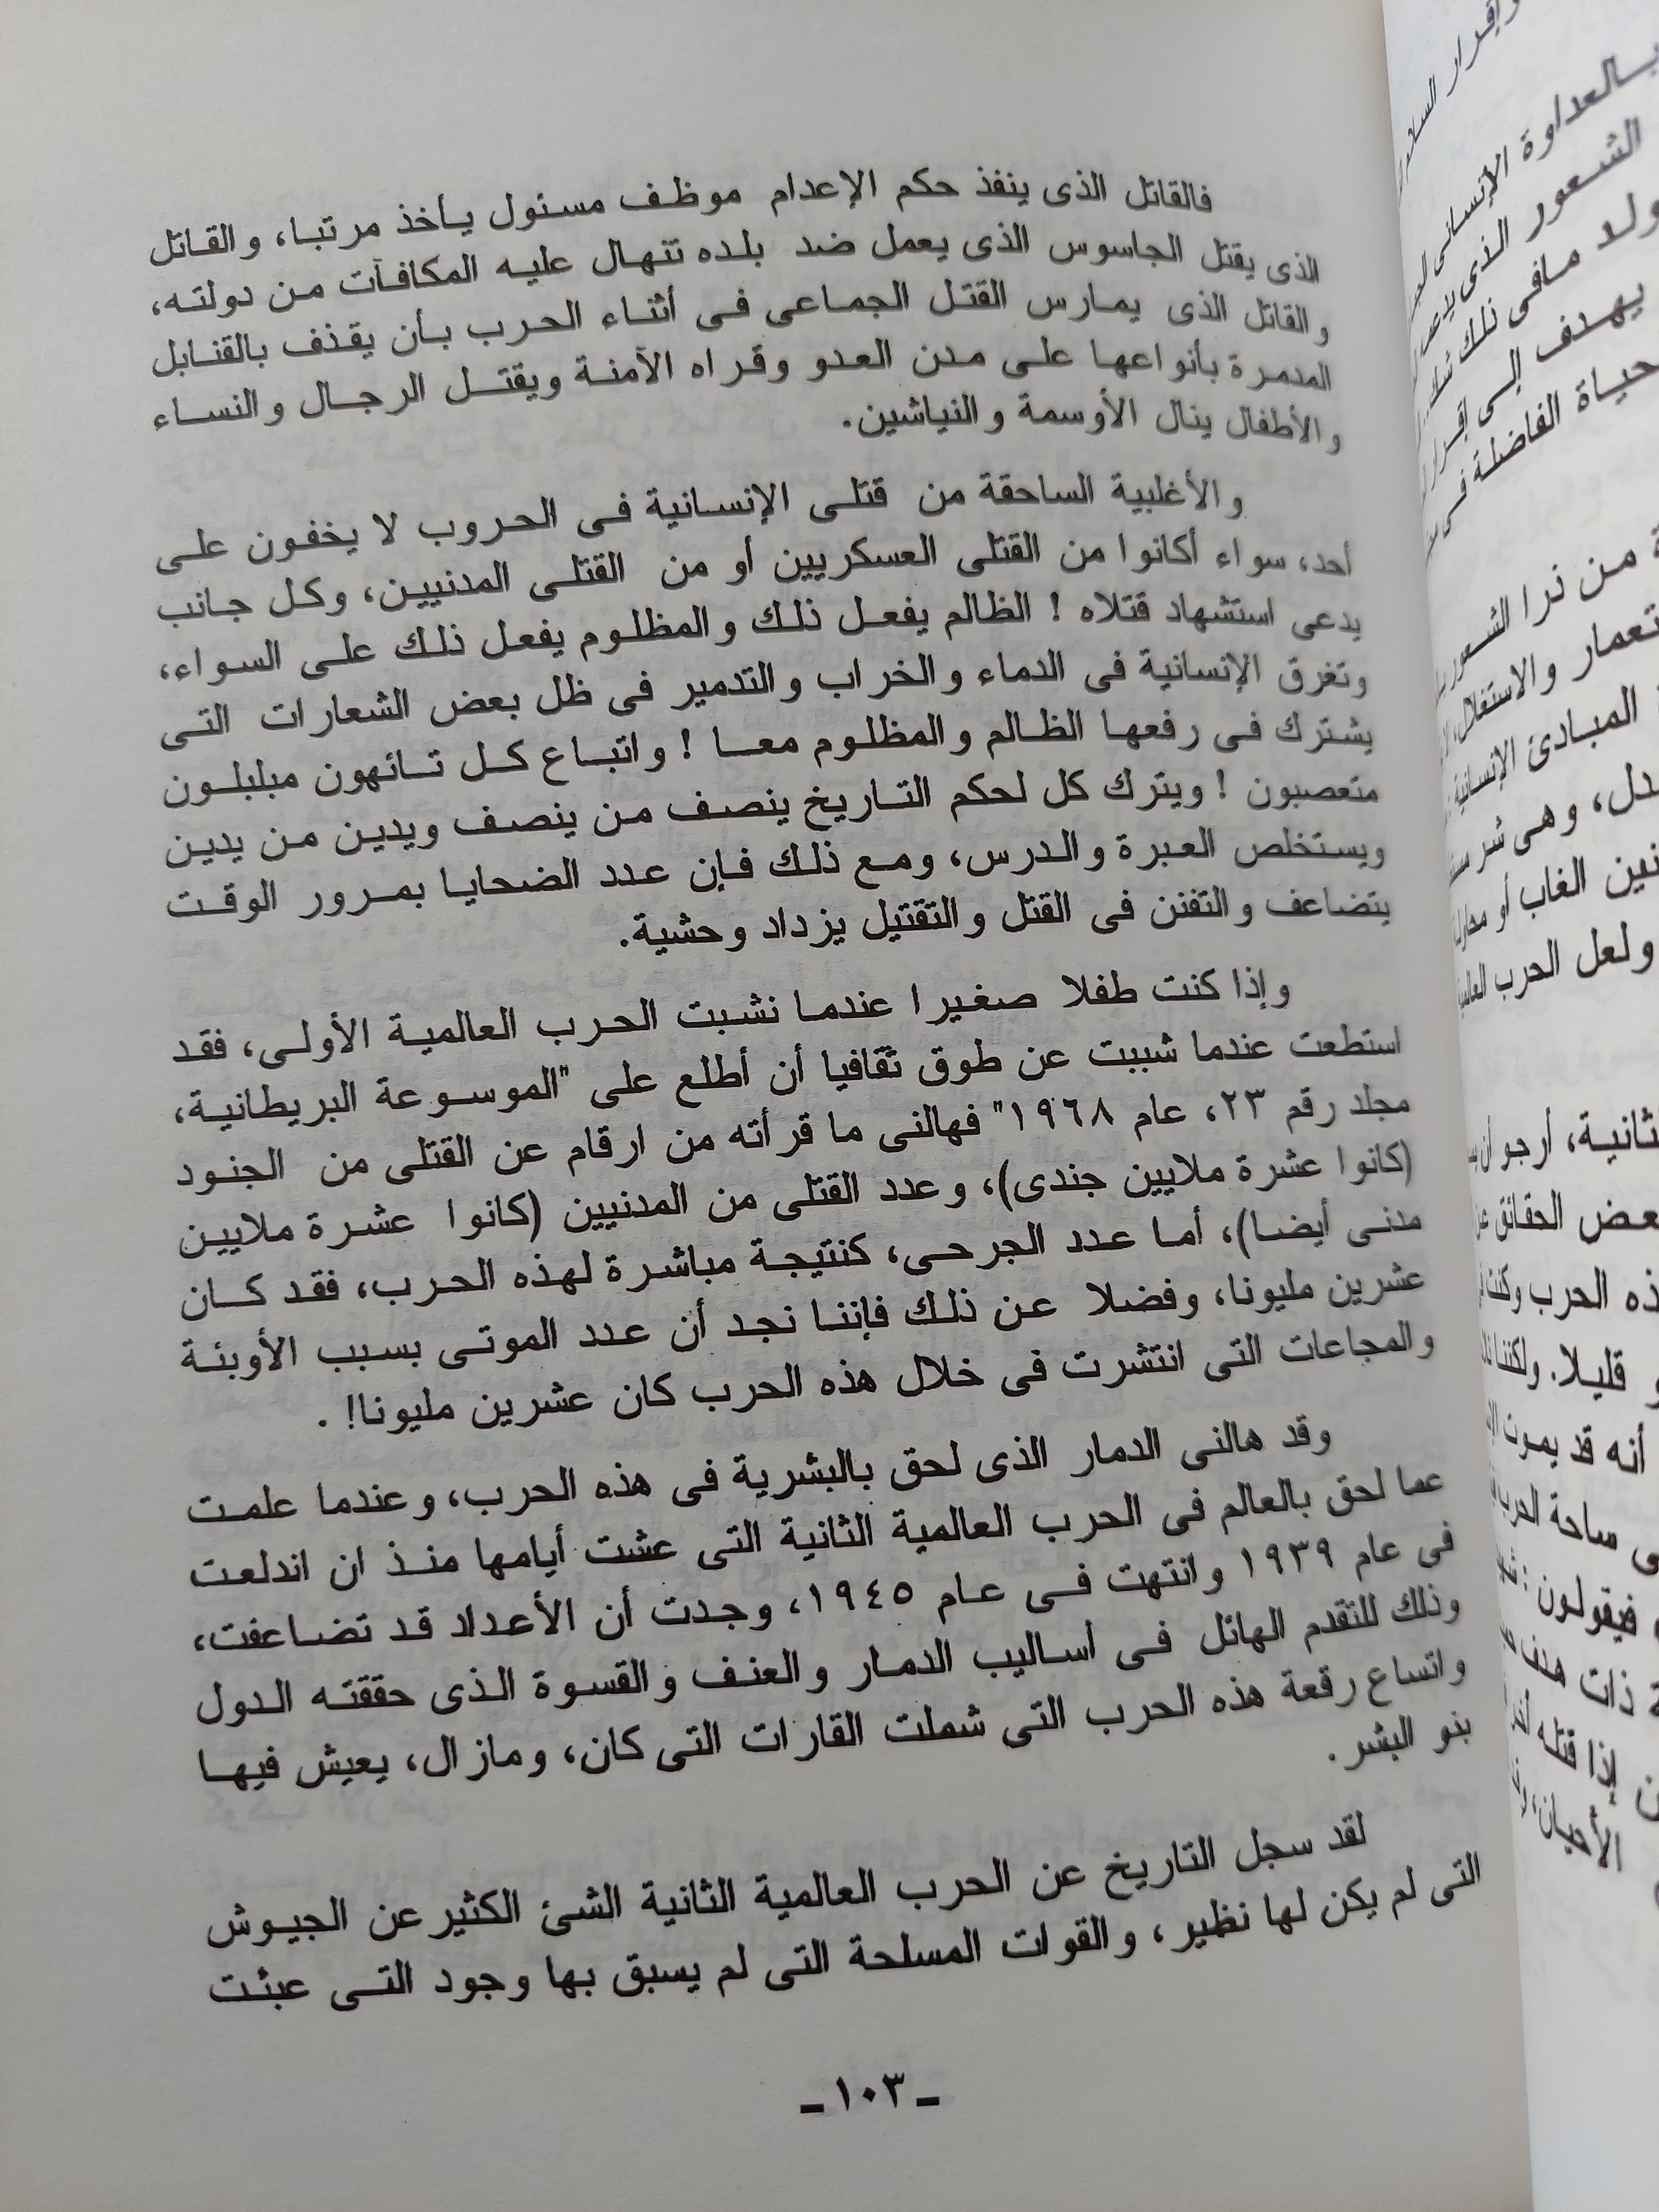 فالقاتل الذى ينفذ حكم الإعدام موظف مسئول يأخذ مرتبا، والقاتل
الذى يقتل الجاسوس الذى يعمل ضد بلده تنهال عليه المكافآت من دولته،
والقاتل الذى يمارس القتل الجماعى فى أثناء الحرب بأن يقذف بالقنابل
المدمرة بأنواعها على مدن العدو وقراه الآمنة ويقتل الرجال والنساء
والأطفال ينال الأوسمة والنياشين.
والأغلبية الساحقة من قتلى الإنسانية فى الحروب لا يخفون على
أحد، سواء أكانوا من القتلى العسكريين أو من القتلى المدنيين، وكل جانب
يدعى استشهاد قتلاه ! الظالم يفعل ذلك والمظلوم يفعل ذلك على السواء،
وتغرق الإنسانية فى الدماء والخراب والتدمير فى ظل بعض الشعارات التى
يشترك فى رفعها الظالم والمظلوم معا ! واتباع كل تائهون مبلبلون
متعصبون ! ويترك كل لحكم التاريخ ينصف من ينصف ويدين من يدين
ويستخلص العبرة والدرس، ومع ذلك فإن عدد الضحايا بمرور الوقت
يتضاعف والتفنن فى القتل والتقتيل يزداد وحشية.
وإذا كنت طفلا صغيرا عندما نشبت الحرب العالمية الأولى، فقد
استطعت عندما شببت عن طوق ثقافيا أن أطلع على "الموسوعة البريطانية،
مجلد رقم ٢٣، عام ١٩٦٨" فهالنى ما قرأته من ارقام عن القتلى من الجنود
(كانوا عشرة ملايين جندى)، وعدد القتلى من المدنيين (كانوا عشرة ملايين
مدنى أيضا)، أما عدد الجرحى، كنتيجة مباشرة لهذه الحرب، فقد كان
عشرين مليونا، وفضلا عن ذلك فإننا نجد أن عدد الموتى بسبب الأوبئة
والمجاعات التى انتشرت فى خلال هذه الحرب كان عشرين مليونا! .
وقد هالنى الدمار الذى لحق بالبشرية فى هذه الحرب، وعندما علمت
عما لحق بالعالم فى الحرب العالمية الثانية التى عشت أيامها منذ ان اندلعت
فى عام ١٩٣٩ وانتهت فى عام ١٩٤٥، وجدت أن الأعداد قد تضاعفت،
وذلك للتقدم الهائل فى أساليب الدمار والعنف والقسوة الذى حققته الدول
واتساع رقعة هذه الحرب التى شملت القارات التى كان، ومازال، يعيش فيها
بنو البشر.
لقد سجل التاريخ عن الحرب العالمية الثانية الشئ الكثير عن الجيوش
التى لم يكن لها نظير، والقوات المسلحة التى لم يسبق بها وجود التى عبئت
ـ ١٠٣ ـ
بالعداوة الإنسانى
الشعور الذى
ولد مافى ذلك شك
يهدف إلى
حياة الفاضلة فى
من ذرا الشعور
تعمار والاستغلال،
المبادئ الإنسانية
دل، وهى شر
نين الغاب أو
ولعل الحرب
ثانية، أرجو أن
عض الحقائق
ذه الحرب وكنت
قليلا. ولكننا
أنه قد يموت
ساحة الحرب
فيقولون :
ذات هدف
إذا قتله
الأحيان،